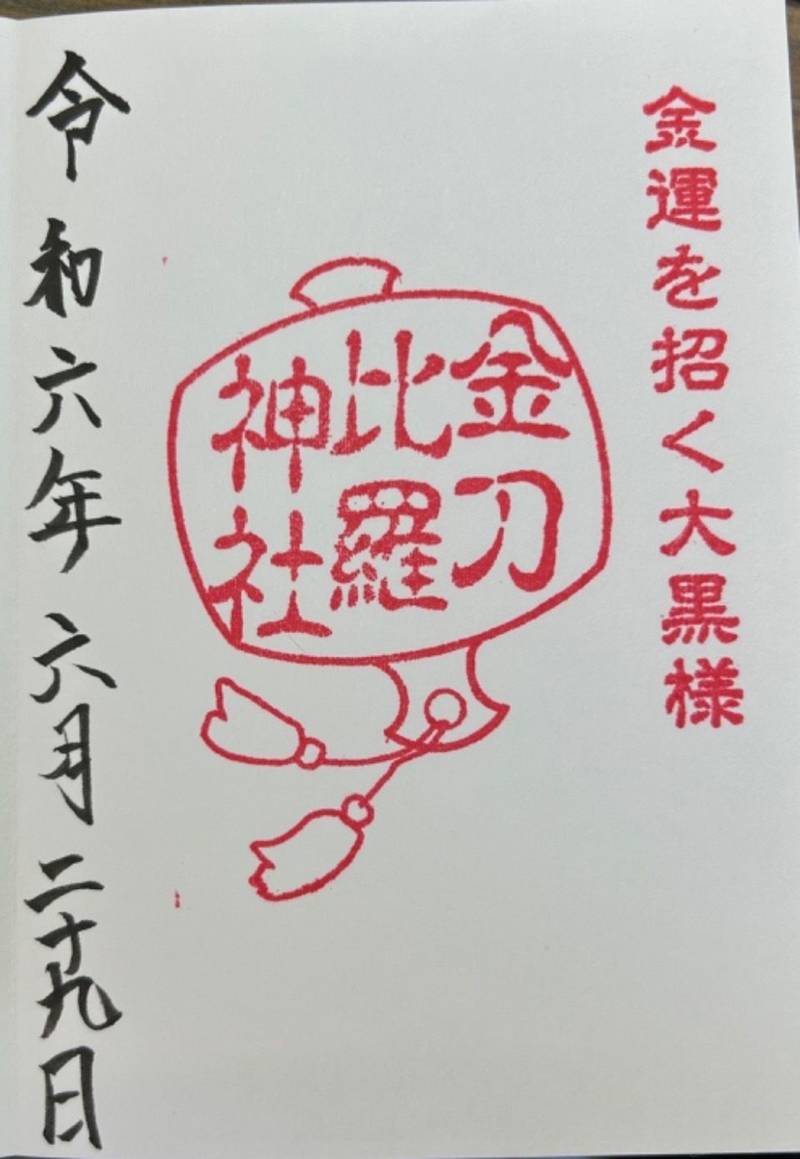 金運を招く大黒様
金刀
比羅
神社
令和六年六月二十九日